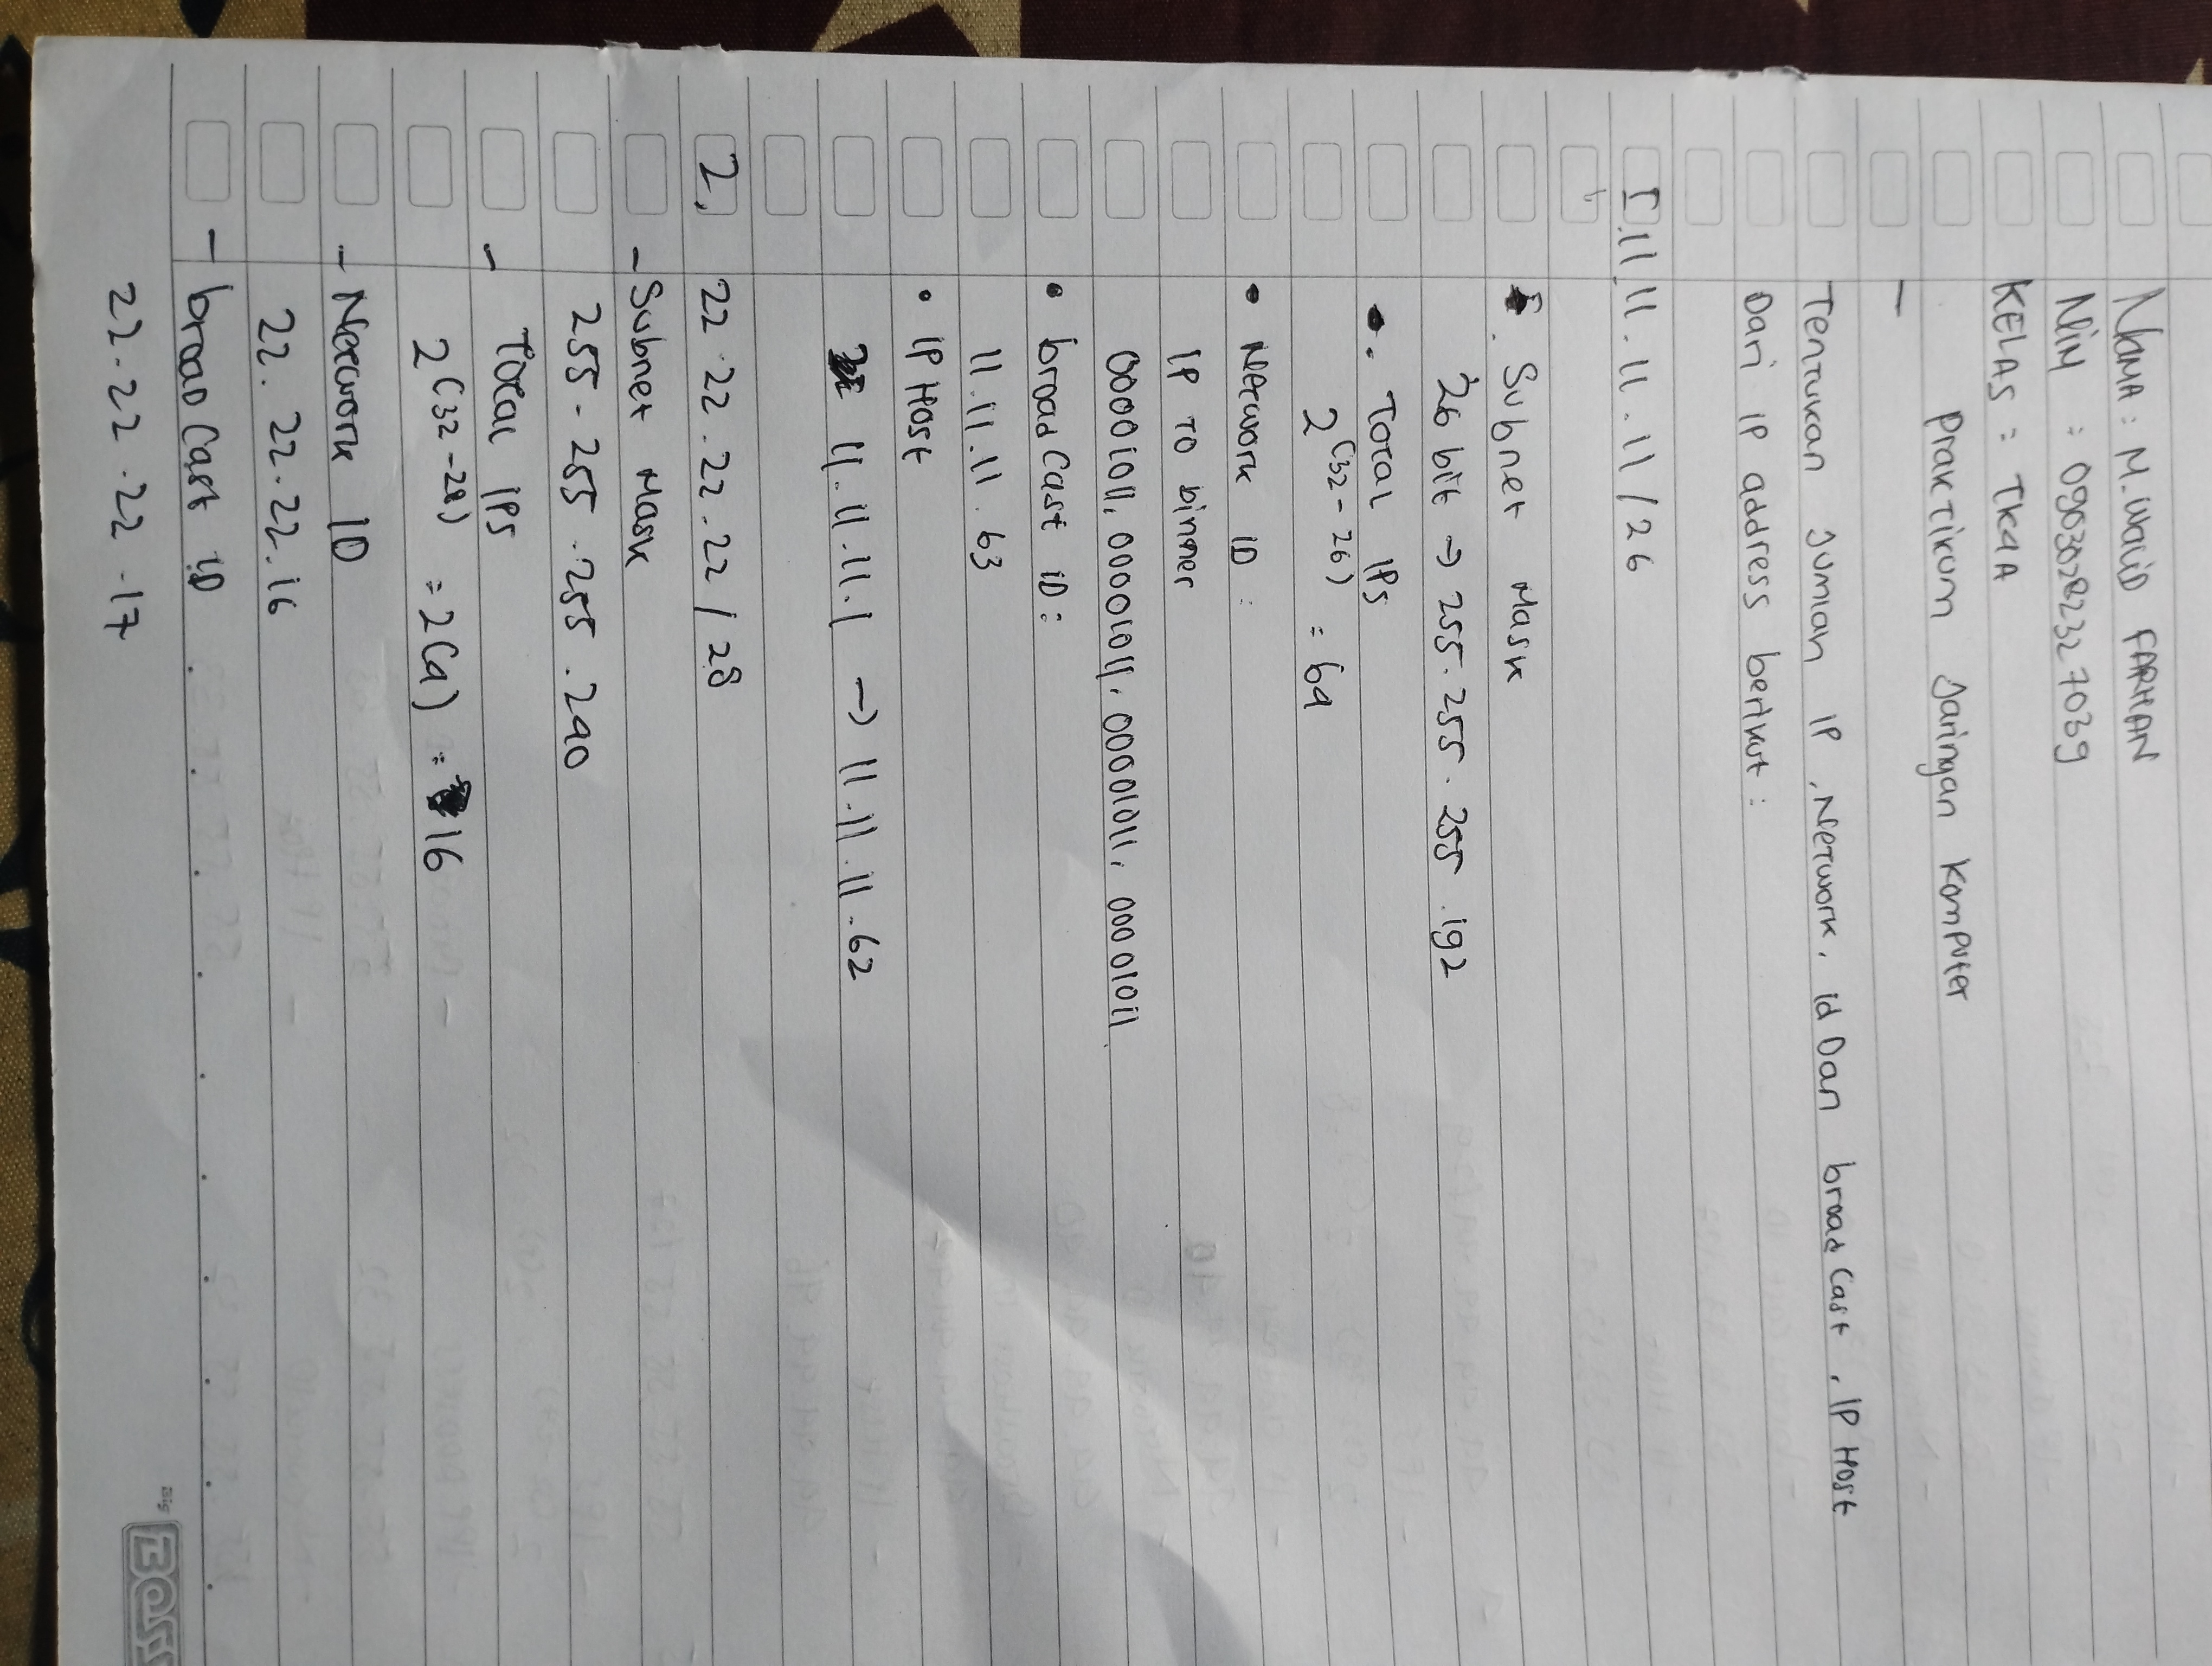 Nama : M. Walid FARHAN
Nim : 09030282327039
KELAS : TK4A
Praktikum Jaringan Komputer
Tentukan Jumlah IP, Network, id Dan broadcast, IP Host
Dari IP address berikut :
I. 11.11.11.11/26
. Subnet Mask
26 bit → 255.255.255.192
• Total IPs
2(32-26) = 64
• Network ID :
IP TO binner
00001011, 00001011, 00001011, 00001011
• broadCast ID :
11.11.11.63
• IP Host
11.11.11.1 → 11.11.11.62
2. 22.22.22.22/28
- Subnet Mask
255.255.255.240
- Total IPs
2(32-28) = 2(4) = 16
- Network ID
22.22.22.16
- broadCast ID
22.22.22.17
BOSS